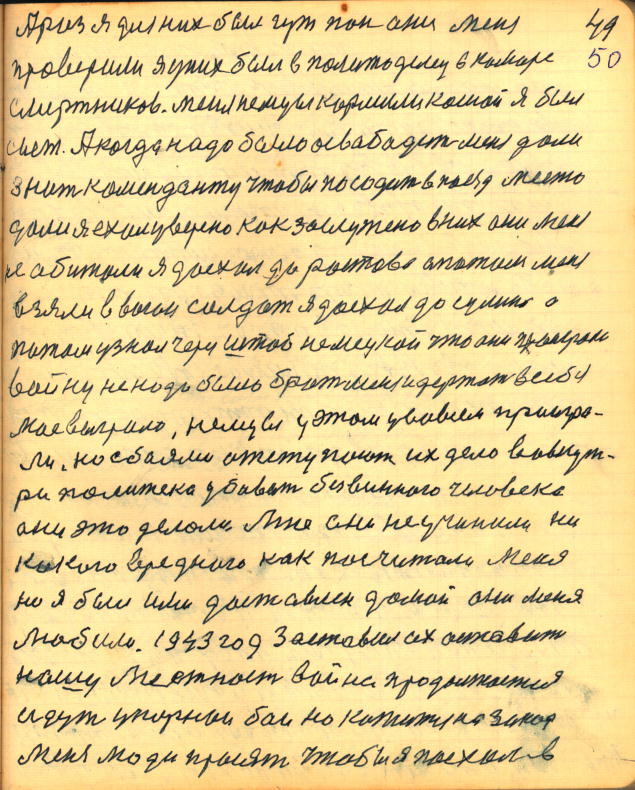 А раз я для них был гут пан они меня 49
проверили я у них был в политоделец в коморе 50
смертников. меня немцы кормили кашой я был
сыет. А когда надо было асвабадет меня дали
знат коменданту чтобы посодит в поезд место
дали я ехал уверено как заслужено в них они меня
не абитали я доехал до ростова а потом меня
взяли в вагон солдат я доехал до сулина а
потом узнал через штоб немецкой что они праиграли
войну не надо было брат меня и держат в себя
мае выграло, немцы у этом увовсем праигра-
ли, но сбаями отступают их дело вовнут-
ри палитека убават безвинного человека
они это делоли Мне они не учинили ни
какого вредного как посчитали меня
но я был ими доставлен домой они меня
Любили. 1943 год Заставил их оставит
нашу Местност война продолжается
идут упорныи баи но катит на Запад
меня люди просят чтобы я поехал в